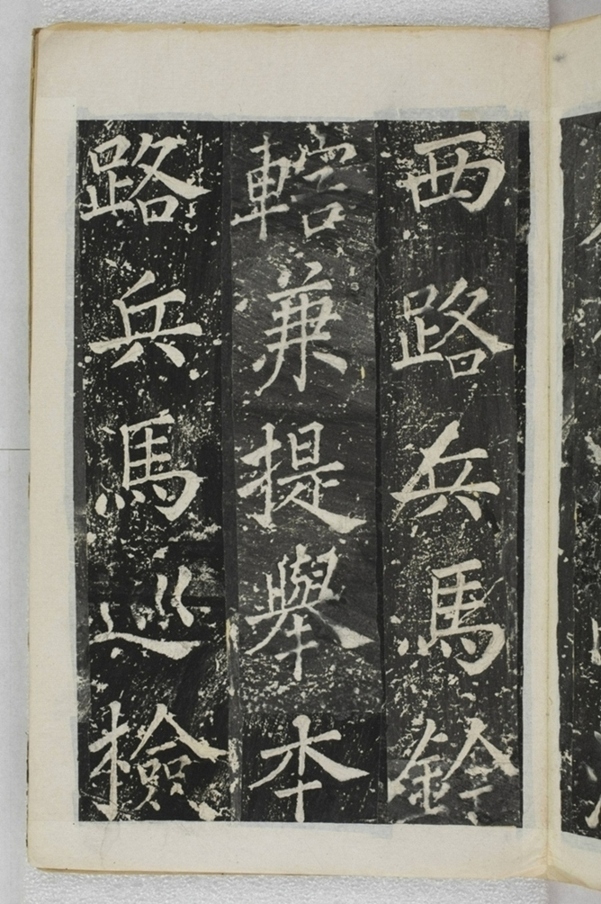 西路兵馬鈐
轄兼提舉本
路兵馬巡檢